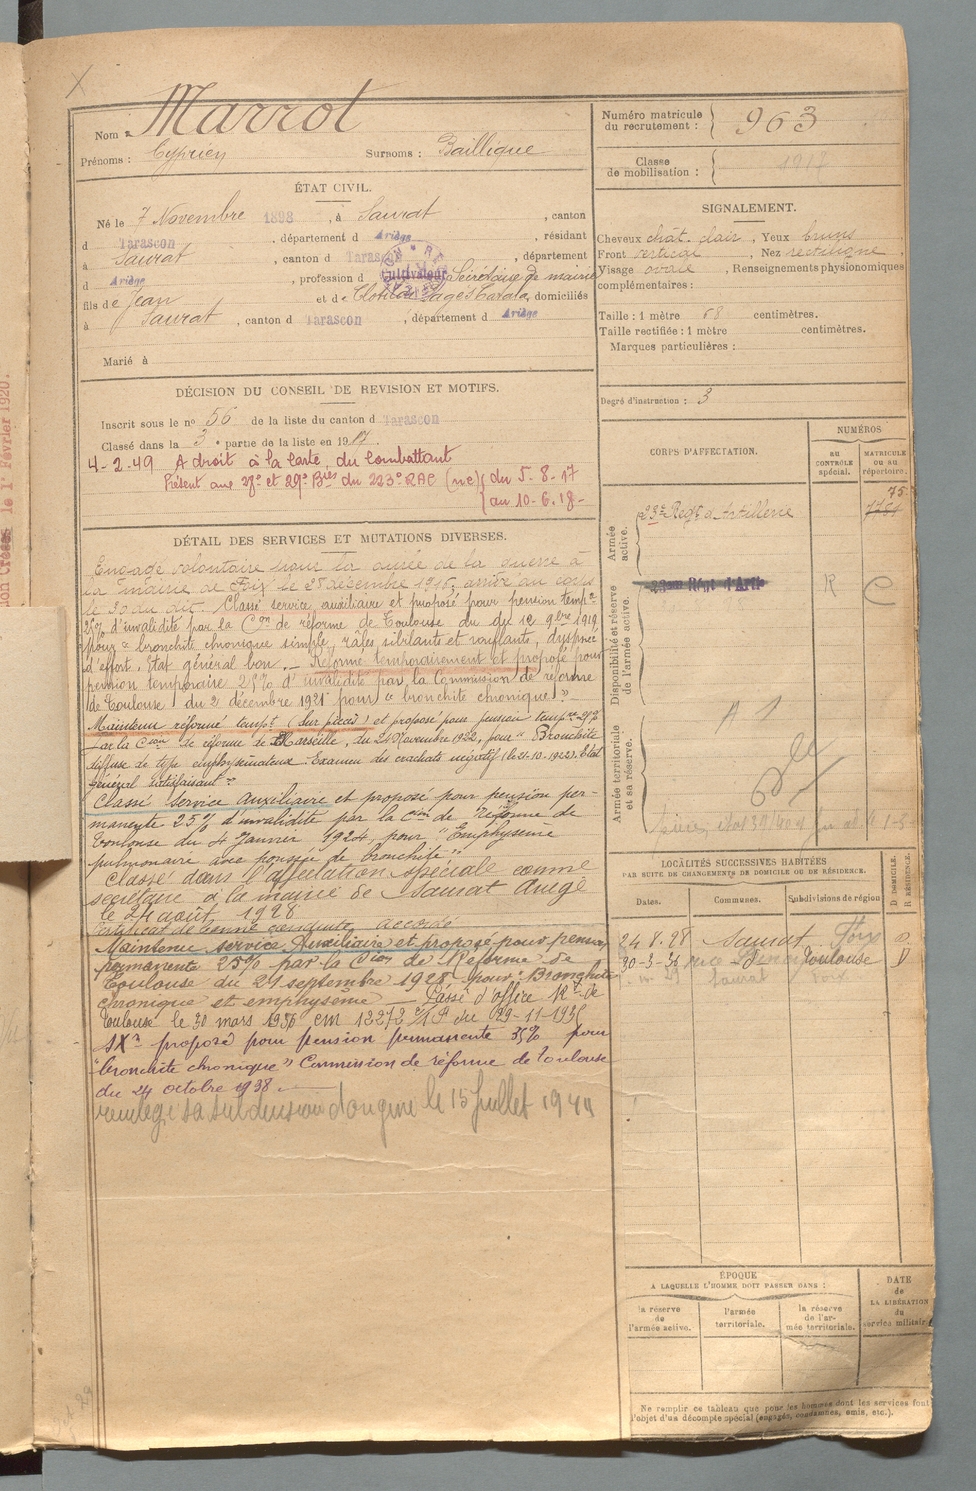 Nom : Marrot
Prénoms : Cyprien Surnoms : Baillique
ÉTAT CIVIL.
Né le 7 Novembre 1898, à Saurat, canton
d Tarascon, département d Ariège, résidant
à Saurat, canton d Tarascon, département
d Ariège, profession d cultivateur Secrétaire de mairie
fils de Jean et de Clotilde Pagès Cavalé, domiciliés
à Saurat, canton d Tarascon, département d Ariège
Marié à
DÉCISION DU CONSEIL DE REVISION ET MOTIFS.
Inscrit sous le n° 56 de la liste du canton d Tarascon
Classé dans la 3e partie de la liste en 1917.
4-2-49 A droit à la Carte du Combattant
Présent aux 28e et 29e Bies du 223e RAC (nc) { du 5-8-17
{ au 10-6-18-
DÉTAIL DES SERVICES ET MUTATIONS DIVERSES.
Engagé volontaire pour la durée de la guerre à
la mairie de Foix le 25 décembre 1916, arrivé au corps
le 30 du dit. Classé service auxiliaire et proposé pour pension tempre
25% d'invalidité par la Con de réforme de Toulouse du 12 9bre 1919
pour " bronchite chronique simple, râles sibilants et ronflants, dyspnée
d'effort. Etat général bon. - Réformé temporairement et proposé pour
pension temporaire 25% d'invalidité par la Commission de réforme
de Toulouse du 2 décembre 1921 pour " bronchite chronique "
Maintenu réformé tempt (sur pièces) et proposé pour pension tempre 25%
par la Cion de réforme de Marseille, du 21 Novembre 1922, pour " Bronchite
diffuse de type emphysémateux - Examen des crachats négatif (le 21-10-1922). Etat
général satisfaisant "
Classé service Auxiliaire et proposé pour pension per-
manente 25% d'invalidité par la Cion de Réforme de
Toulouse du 4 Janvier 1924, pour " Emphysème
pulmonaire avec poussée de bronchite ".
Classé dans l'affectation spéciale comme
secrétaire à la mairie de Saurat Ariège
le 24 août 1928
Certificat de bonne conduite accordé
Maintenu service Auxiliaire et proposé pour pension
permanente 25% par la Cion de Réforme de
Toulouse du 21 septembre 1928 pour : Bronchite
chronique et emphysème - Passé d'office Rt de
Toulouse le 30 mars 1936 du 29-11-1935
proposé pour pension permanente 35% pour
" bronchite chronique " Commission de réforme de Toulouse
du 24 octobre 1938
sa subdivision d'origine le 15 juillet 194
Numéro matricule
du recrutement : } 963
Classe
de mobilisation : } 1917
SIGNALEMENT.
Cheveux chât. clair, Yeux bruns
Front vertical, Nez rectiligne
Visage ovale, Renseignements physionomiques
complémentaires :
Taille : 1 mètre 68 centimètres.
Taille rectifiée : 1 mètre centimètres.
Marques particulières :
Degré d'instruction : 3
CORPS D'AFFECTATION.
NUMÉROS
au
CONTRÔLE
spécial.
MATRICULE
ou au
répertoire.
Armée
active.
23e Regt d'Artillerie
75
Disponibilité et réserve
de l'armée active.
23em Régt d'Artie
R C
Armée territoriale
et sa réserve.
LOCALITÉS SUCCESSIVES HABITÉES
PAR SUITE DE CHANGEMENTS DE DOMICILE OU DE RÉSIDENCE.
Dates. Communes. Subdivisions de région D DOMICILE. R RÉSIDENCE.
24.8.28 Saurat Foix D
30-3-36 Toulouse D
Saurat Foix
ÉPOQUE
A LAQUELLE L'HOMME DOIT PASSER DANS :
la réserve
de
l'armée active.
l'armée
territoriale.
la réserve
de l'ar-
mée territoriale.
DATE
de
LA LIBÉRATION
du
service militaire
Ne remplir ce tableau que pour les hommes dont les services font
l'objet d'un décompte spécial (engagés, condamnés, omis, etc.).